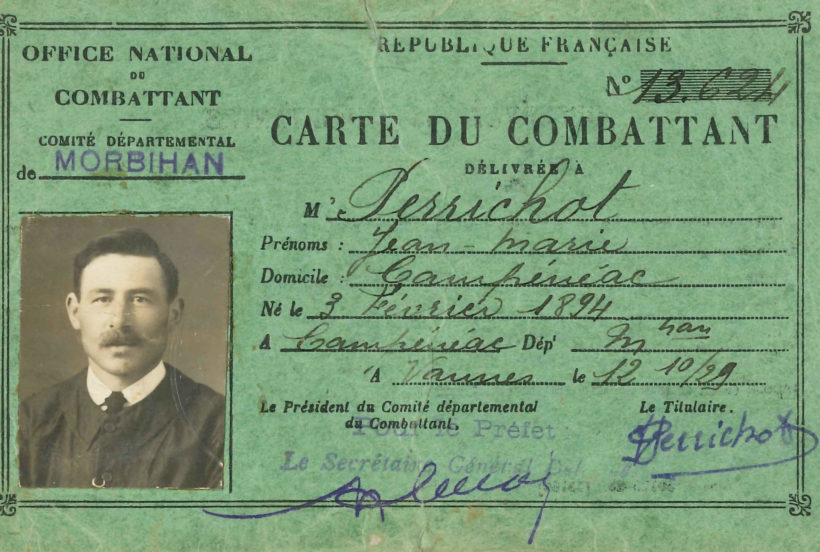 OFFICE NATIONAL
DU
COMBATTANT
COMITÉ DÉPARTEMENTAL
de MORBIHAN
RÉPUBLIQUE FRANÇAISE
N° 13.624
CARTE DU COMBATTANT
DÉLIVRÉE À
M' Perrichot
Prénoms : Jean-Marie
Domicile : Campénéac
Né le 3 Février 1894
A Campénéac Dép' Mhan
A Vannes le 12 10/29
Le Président du Comité départemental
du Combattant,
Le Titulaire.
Pour le Préfet
Le Secrétaire Général
Perrichot